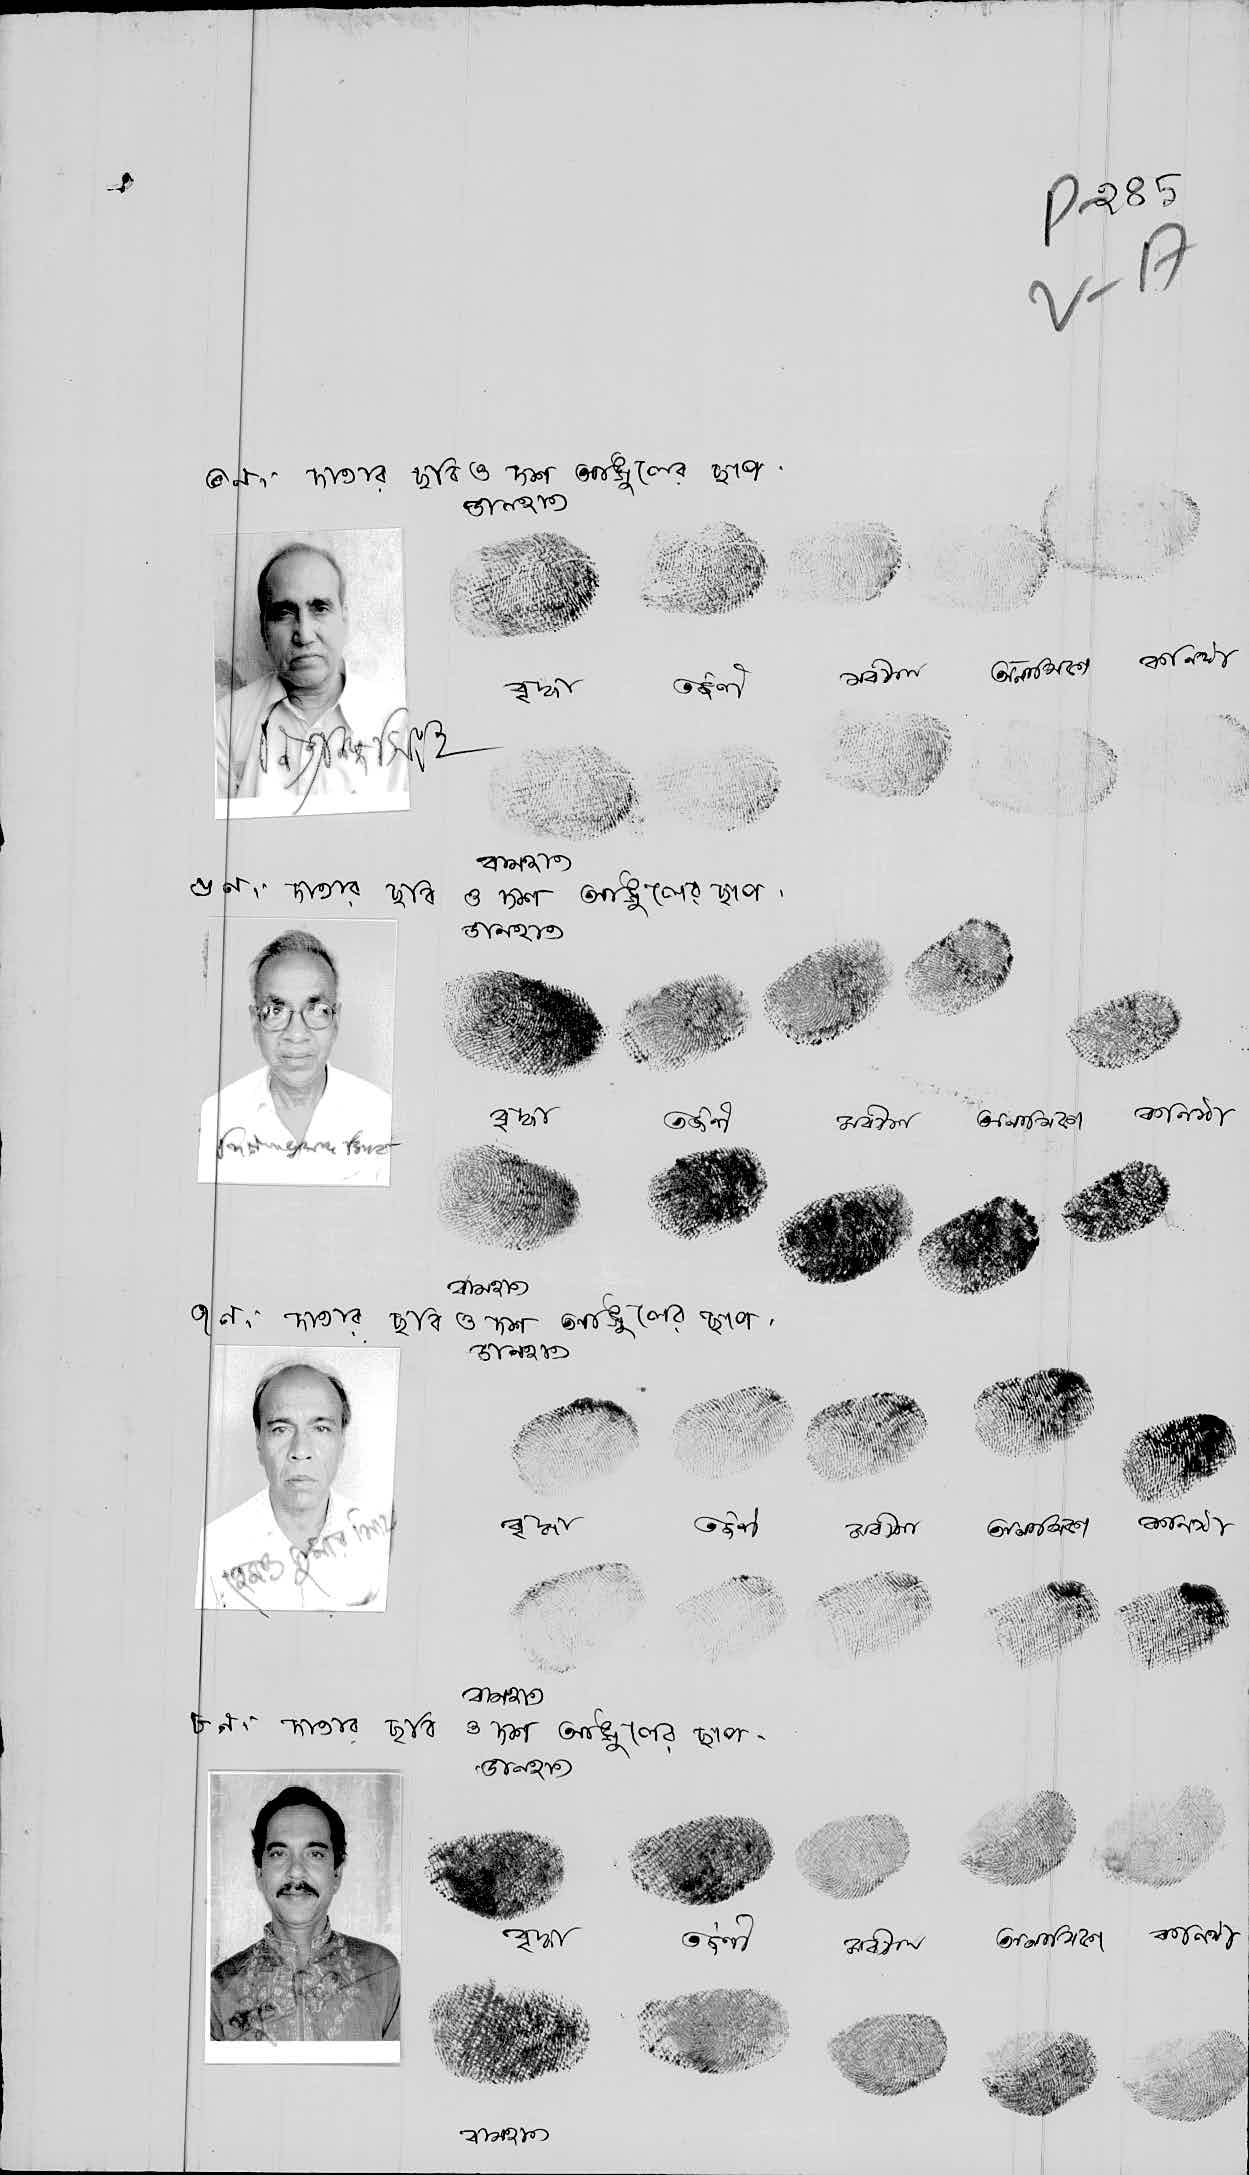 P-285
V-A
৫নং দাতার ছবি ও দশ আঙ্গুলের ছাপ.
ডানহাত
বৃদ্ধা তর্জনী মধ্যমা অনামিকা কনিষ্ঠা
বামহাত
৬নং দাতার ছবি ও দশ আঙ্গুলের ছাপ.
ডানহাত
বৃদ্ধা তর্জনী মধ্যমা অনামিকা কনিষ্ঠা
বামহাত
৭নং দাতার ছবি ও দশ আঙ্গুলের ছাপ.
ডানহাত
বৃদ্ধা তর্জনী মধ্যমা অনামিকা কনিষ্ঠা
হেমন্ত কুমার সিংহ
বামহাত
৮নং দাতার ছবি ও দশ আঙ্গুলের ছাপ.
ডানহাত
বৃদ্ধা তর্জনী মধ্যমা অনামিকা কনিষ্ঠা
বামহাত